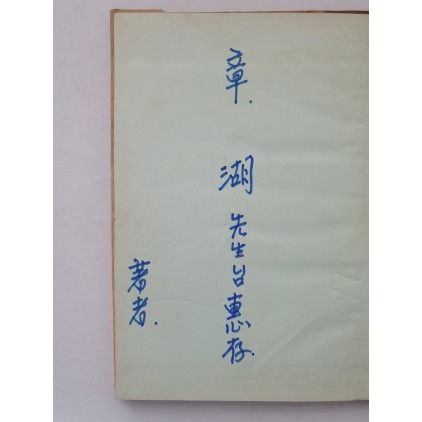 章. 湖 先生台惠存.
著者.